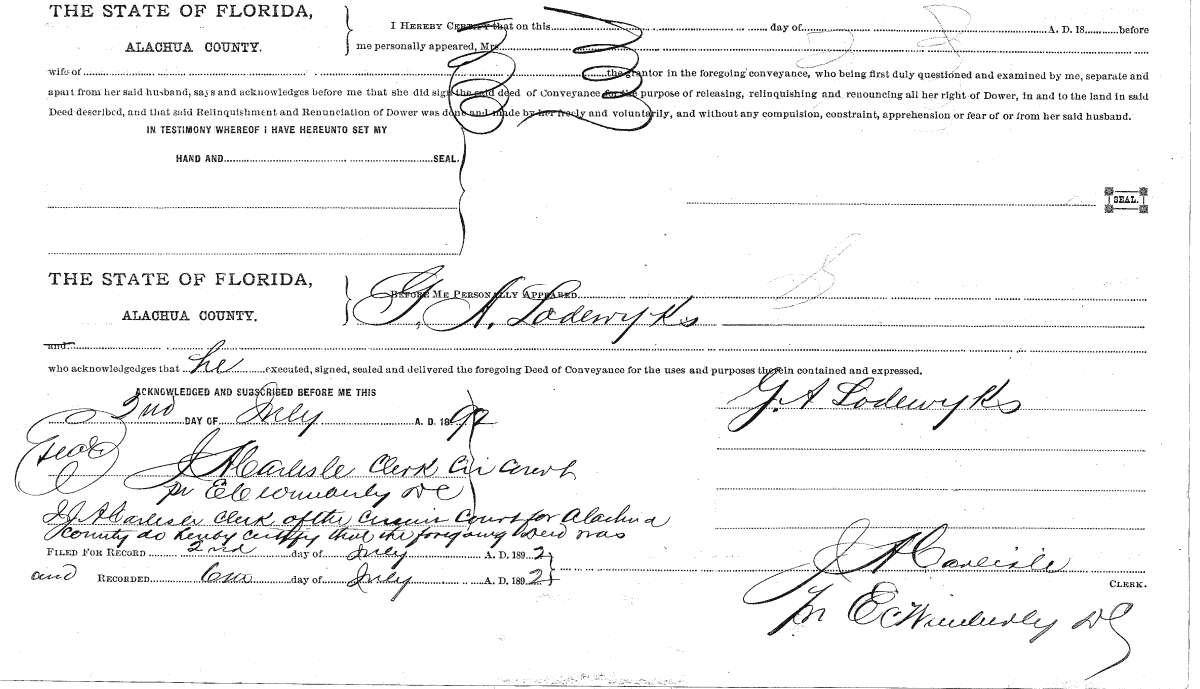 THE STATE OF FLORIDA,
ALACHUA COUNTY.
I HEREBY CERTIFY that on this day of A. D. 18 before
me personally appeared, Mrs.
wife of the grantor in the foregoing conveyance, who being first duly questioned and examined by me, separate and
apart from her said husband, says and acknowledges before me that she did sign the said deed of Conveyance for the purpose of releasing, relinquishing and renouncing all her right of Dower, in and to the land in said
Deed described, and that said Relinquishment and Renunciation of Dower was done and made by her freely and voluntarily, and without any compulsion, constraint, apprehension or fear of or from her said husband.
IN TESTIMONY WHEREOF I HAVE HEREUNTO SET MY
HAND AND SEAL.
SEAL.
THE STATE OF FLORIDA,
ALACHUA COUNTY.
BEFORE ME PERSONALLY APPEARED
G. A. Lodewyks
and
who acknowledgedges that he executed, signed, sealed and delivered the foregoing Deed of Conveyance for the uses and purposes therein contained and expressed.
ACKNOWLEDGED AND SUBSCRIBED BEFORE ME THIS
2nd DAY OF July A. D. 1892
G. A Lodewyks
Seal
J A Carlisle Clerk Cir Court
pr E C Wimberly DC
I J A Carlisle Clerk of the Circuit Court for Alachua
County do hereby certify that the foregoing Deed was
FILED FOR RECORD 2nd day of July A. D. 1892
and RECORDED 6th day of July A. D. 1892
J A Carlisle
CLERK.
pr E C Wimberly DC